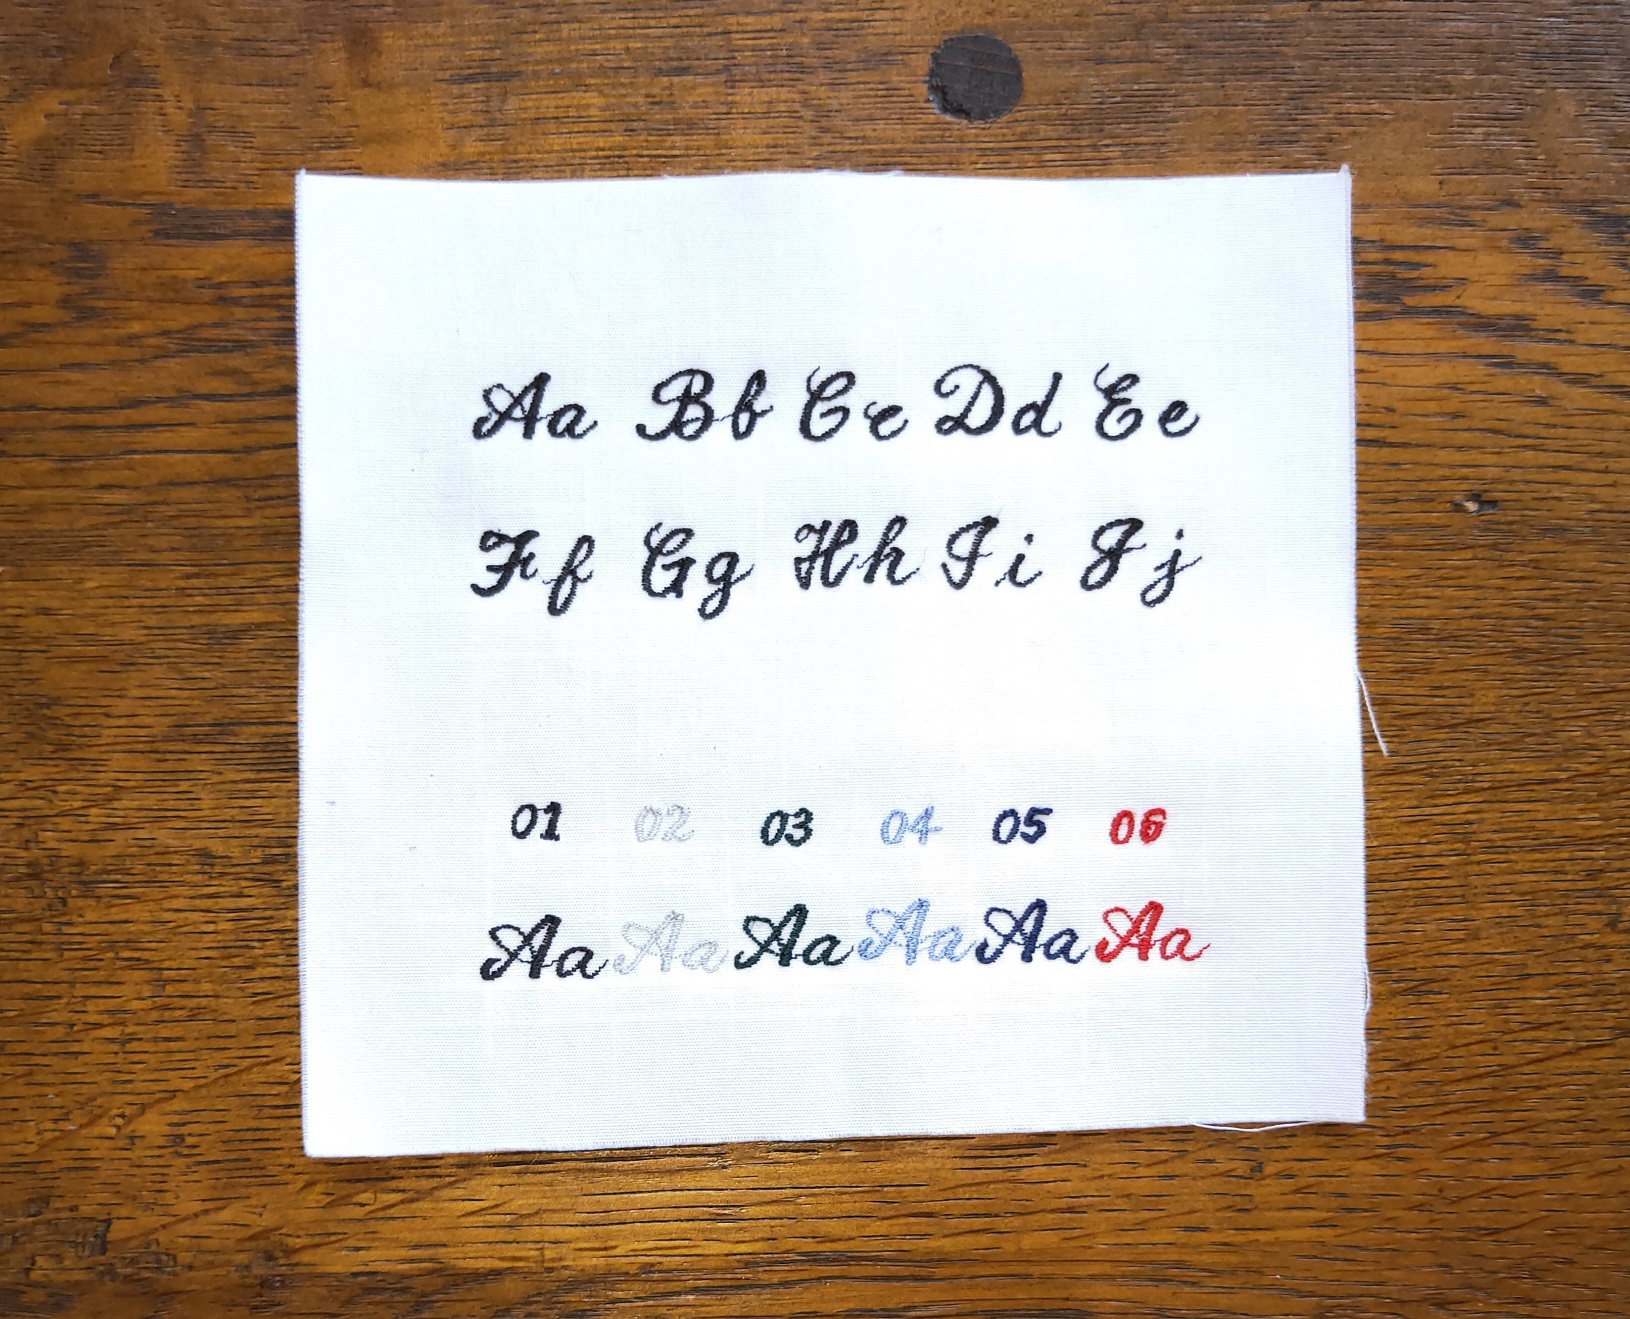 Aa Bb Cc Dd Ee
Ff Gg Hh Ii Jj
01 02 03 04 05 06
Aa Aa Aa Aa Aa Aa